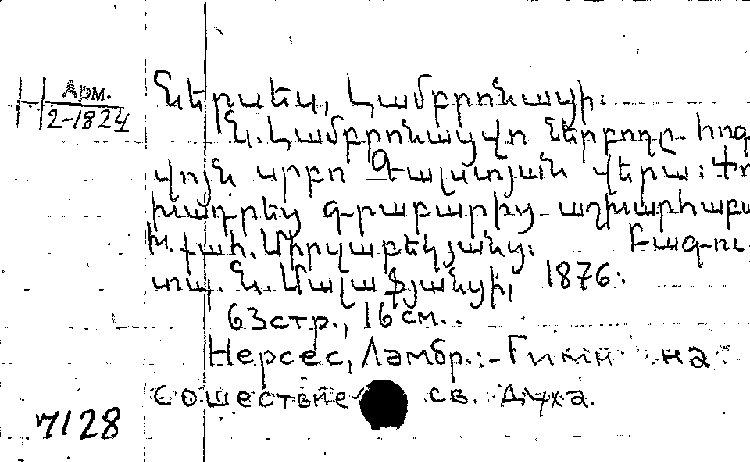 Арм.
2-1824
Ներսես, Լամբրոնացի:
Ն. Լամբրոնացվո ներբողը հոգ
վույն սրբո Գալստյան վերա: Փո
խադրեց գրաբարից աշխարհաբա
Խ. քահ. Միրզաբեկյանց: Բագու,
տպ. Ն. 1876:
63стр., 16см..
Нерсес, Ламбр.:- Гимн на
Сошествие св. духа.
7128